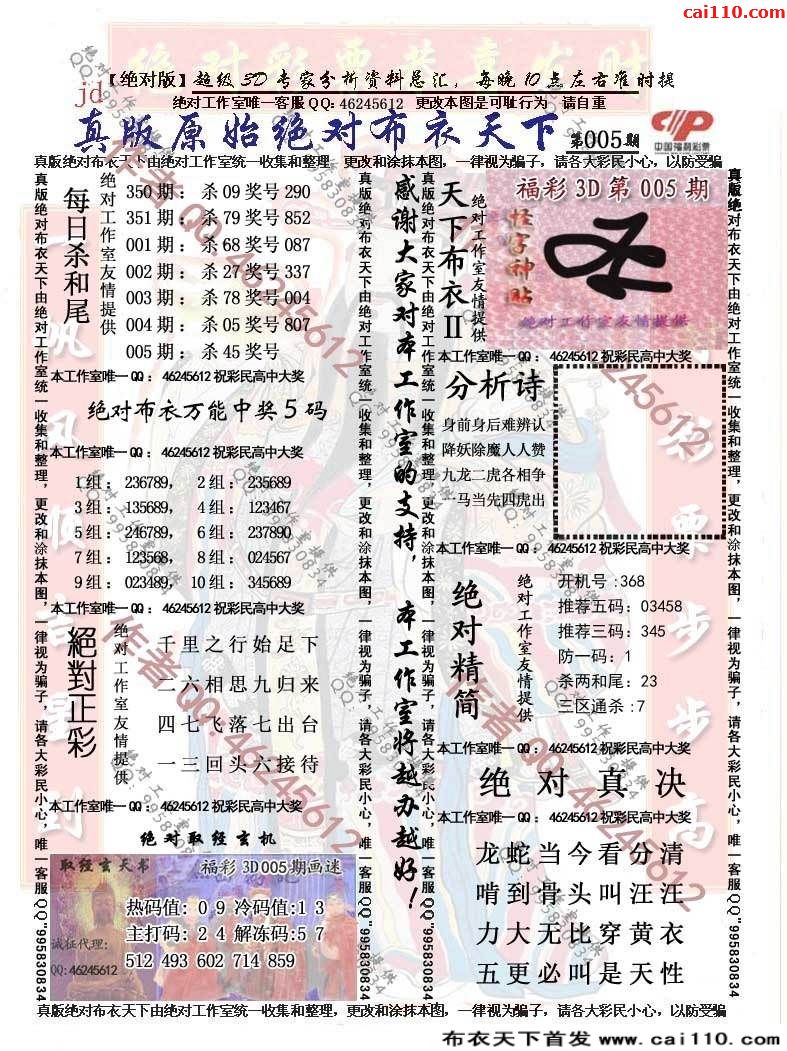 cai110.com
【绝对版】超级3D专家分析资料总汇，每晚10点左右准时提
绝对工作室唯一客服QQ: 46245612 更改本图是可耻行为 请自重
jd
真版原始绝对布衣天下 第005期
中国福利彩票
真版绝对布衣天下由绝对工作室统一收集和整理，更改和涂抹本图，一律视为骗子，请各大彩民小心，以防受骗
真版绝对布衣天下由绝对工作室统一收集和整理，更改和涂抹本图，一律视为骗子，请各大彩民小心，唯一客服QQ"995830834
每日杀和尾
绝对工作室友情提供
350期：杀09奖号290
351期：杀79奖号852
001期：杀68奖号087
002期：杀27奖号337
003期：杀78奖号004
004期：杀05奖号807
005期：杀45奖号
本工作室唯一QQ：46245612祝彩民高中大奖
绝对布衣万能中奖5码
本工作室唯一QQ：46245612祝彩民高中大奖
1组：236789， 2组：235689
3组：135689， 4组：123467
5组：246789， 6组：237890
7组：123568， 8组：024567
9组：023489， 10组：345689
本工作室唯一QQ：46245612祝彩民高中大奖
絕對正彩
绝对工作室友情提供
千里之行始足下
二六相思九归来
四七飞落七出台
一三回头六接待
本工作室唯一QQ：46245612祝彩民高中大奖
绝对取经玄机
取经玄天书 福彩3D005期画迷
热码值：0 9 冷码值:1 3
主打码：2 4 解冻码:5 7
512 493 602 714 859
诚征代理:
QQ:46245612
真版绝对布衣天下由绝对工作室统一收集和整理，更改和涂抹本图，一律视为骗子，请各大彩民小心，唯一客服QQ"995830834
感谢大家对本工作室的支持，本工作室将越办越好！
真版绝对布衣天下由绝对工作室统一收集和整理，更改和涂抹本图，一律视为骗子，请各大彩民小心，唯一客服QQ"995830834
天下布衣II
绝对工作室友情提供
福彩3D第005期
怪字神贴
绝对工作室友情提供
本工作室唯一QQ：46245612祝彩民高中大奖
分析诗
身前身后难辨认
降妖除魔人人赞
九龙二虎各相争
一马当先四虎出
本工作室唯一QQ：46245612祝彩民高中大奖
绝对精简
绝对工作室友情提供
开机号:368
推荐五码:03458
推荐三码:345
防一码:1
杀两和尾:23
三区通杀:7
本工作室唯一QQ：46245612祝彩民高中大奖
绝对真决
本工作室唯一QQ：46245612祝彩民高中大奖
龙蛇当今看分清
啃到骨头叫汪汪
力大无比穿黄衣
五更必叫是天性
真版绝对布衣天下由绝对工作室统一收集和整理，更改和涂抹本图，一律视为骗子，请各大彩民小心，唯一客服QQ"995830834
真版绝对布衣天下由绝对工作室统一收集和整理，更改和涂抹本图，一律视为骗子，请各大彩民小心，以防受骗
布衣天下首发 www.cai110.com